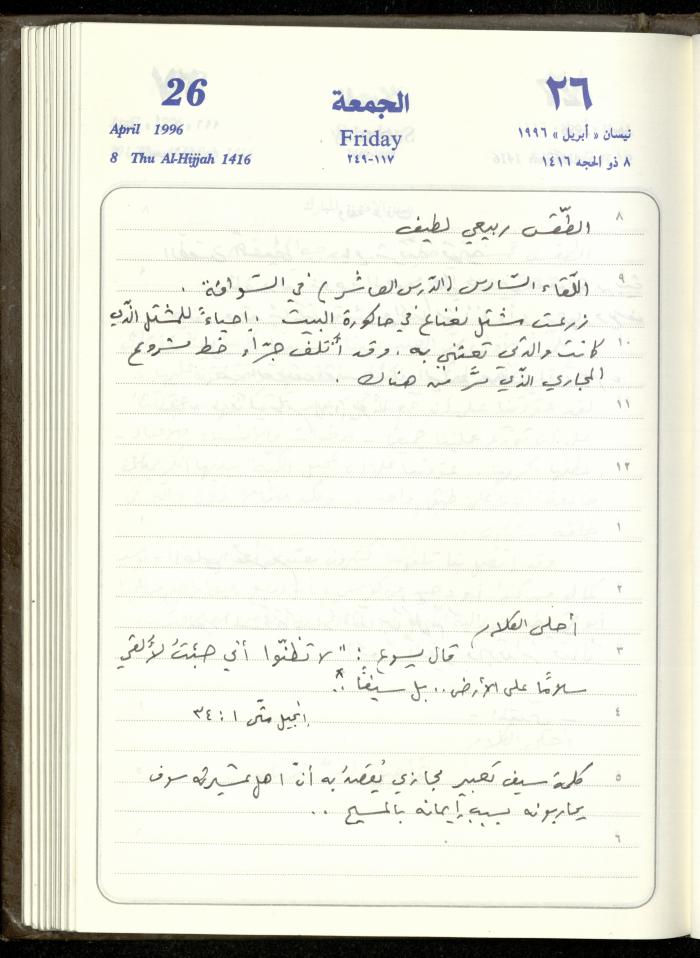 26
الجمعة
٢٦
April 1996
Friday
نيسان « أبريل » ١٩٩٦
8 Thu Al-Hijjah 1416
١١٧-٢٤٩
٨ ذو الحجه ١٤١٦
٨
الطّقس ربيعي لطيف
٩
اللّقاء السّادس (الدّرس العاشر) في السّواقة .
زرعت مشتل نعناع في حاكورة البيت . إحياءً للمشتل الذي
١٠
كانت والدتي تعتني به . وقد أُتلف جرّاء خط مشروع
المجاري الذّي مرَّ من هناك .
١١
١٢
١
٢
أحلى الكلام
٣
قال يسوع : " لا تظنّوا أني جئتُ لألقي
سلامًا على الأرض .. بل سيفًا ".
٤
إنجيل متّى ١ : ٣٤
٥
كلمة سيف تعبير مجازي يُقصدُ به أنّ اهل عشيرته سوف
يحاربونه بسبب إيمانه بالمسيح ..
٦